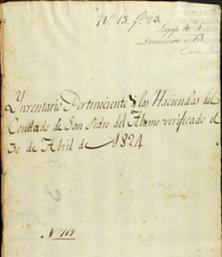 Nº 13. fs 23.
Legajo Nº
Documento Nº 13
Ynventario Perteneciente á las Haciendas del
Condado de San Pedro del Alamo verificado el
30 de Abril de 1824
Nº 168